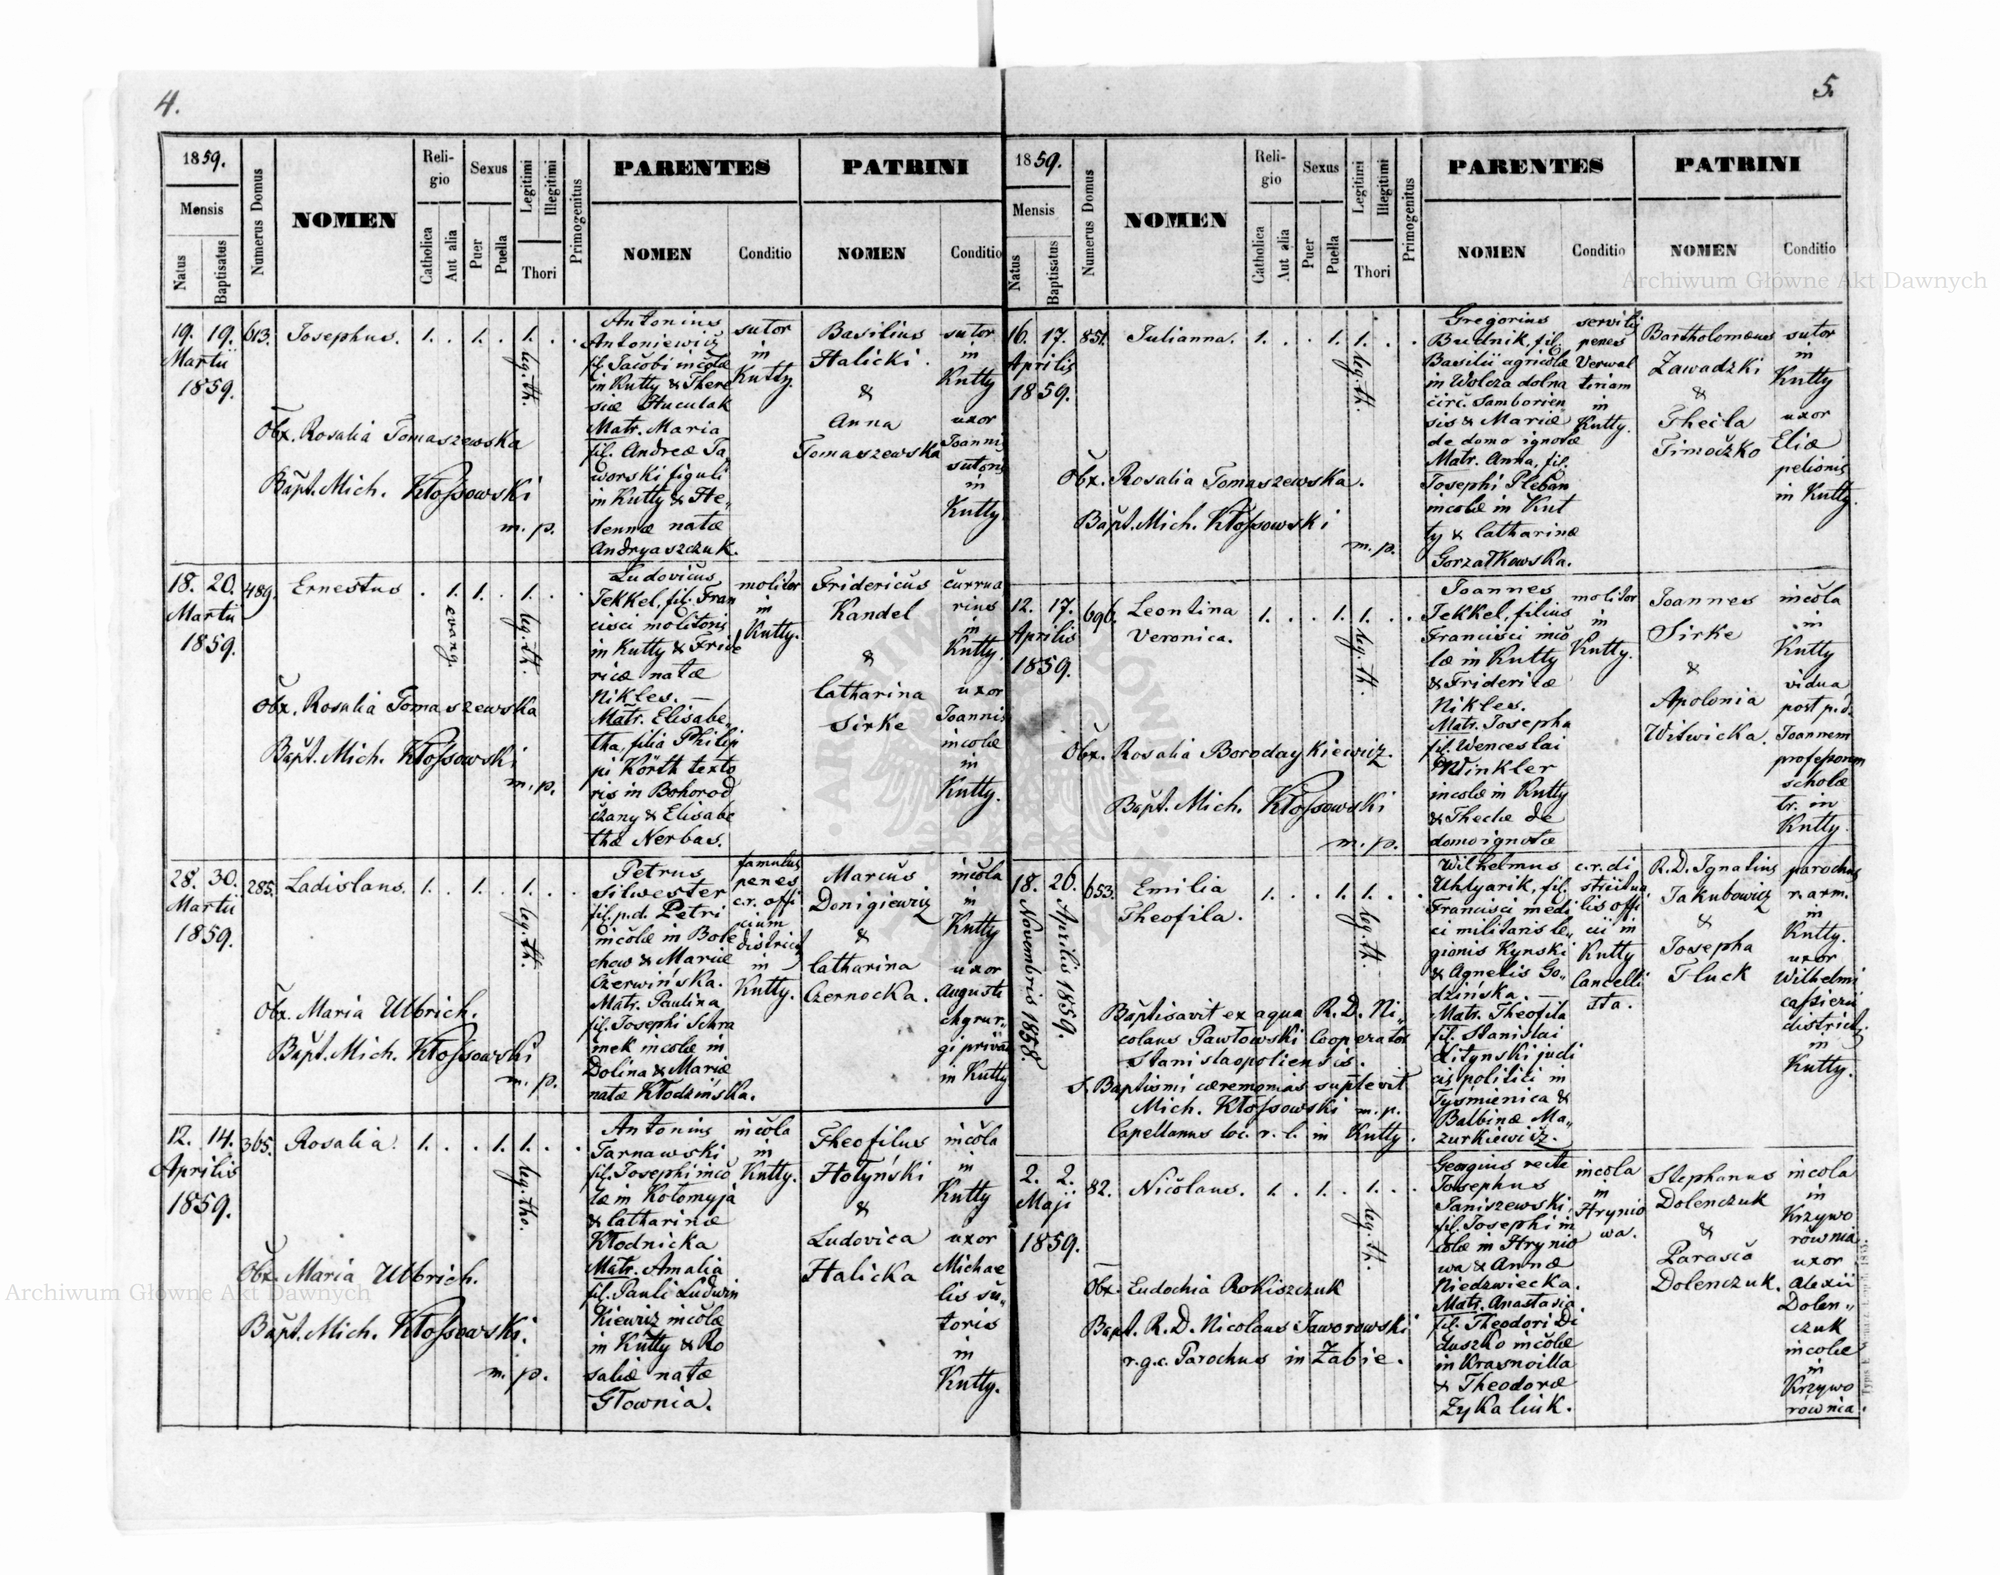 4.
1859.
Mensis
Natus
Baptisatus
Numerus Domus
NOMEN
Religio
Catholica
Aut alia
Sexus
Puer
Puella
Legitimi
Illegitimi
Thori
Primogenitus
PARENTES
NOMEN
Conditio
PATRINI
NOMEN
Conditio
19. 19. 613. Josephus. 1. . 1. . 1. . .
Martii
1859.
leg. th.
Obx. Rosalia Tomaszewska
Bapt. Mich. Kłossowski
m. p.
Antonius
Antoniewicz
fil. Jacobi incolæ
in Kutty & There
siæ Huculak
Matr. Maria
fil. Andreæ Ja
worski figuli
in Kutty & He„
lennæ natæ
Andryaszczuk.
sutor
in
Kutty.
Basilius
Halicki.
&
Anna
Tomaszewska
sutor
in
Kutty
uxor
Joannis
sutoris
in
Kutty.
18. 20. 489. Ernestus . 1. 1. . 1. . .
Martii
1859.
evang.
leg. th.
Obx. Rosalia Tomaszewska
Bapt. Mich. Kłossowski
m. p.
Ludovicus
Jekkel, fil. Fran
cisci molitoris
in Kutty & Fride
ricæ natæ
Nikles. —
Matr. Elisabe„
tha, filia Philip
pi Körth texto
ris in Bohorod
czany & Elisabe
thæ Nerbas.
molitor
in
Kutty.
Fridericus
Kandel
&
Catharina
Sirke
currua
rius
in
Kutty.
uxor
Joannis
incolæ
in
Kutty.
28. 30. 285. Ladislaus. 1. . 1. . 1. . .
Martii
1859.
leg. th.
Obx. Maria Ulbrich.
Bapt. Mich. Kłossowski
m. p.
Petrus
Silwester
fil. p.d. Petri
incolæ in Bole
chow & Mariæ
Czerwińska.
Matr. Paulina
fil. Josephi Schra
mek incolæ in
Dolina & Mariæ
natæ Kłodzińska.
famulus
penes
c.r. offi
cium
district
in
Kutty.
Marcus
Donigiewicz
&
Catharina
Czernocka.
incola
in
Kutty
uxor
Augusti
chyrur„
gi privati
in Kutty
12. 14. 365. Rosalia. 1. . . 1. 1. . .
Aprilis
1859.
leg. tho.
Obx. Maria Ulbrich.
Bapt. Mich. Kłossowski.
m. p.
Antonius
Tarnawski
fil. Josephi inco
læ in Kołomyja
& Catharinæ
Kłodnicka
Matr. Amalia
fil. Pauli Ludwin
kiewicz incolæ
in Kutty & Ro
saliæ natæ
Głownia.
incola
in
Kutty.
Theofilus
Hołyński
&
Ludovica
Halicka
incola
in
Kutty
uxor
Michae
lis su„
toris
in
Kutty.
5.
1859.
Mensis
Natus
Baptisatus
Numerus Domus
NOMEN
Religio
Catholica
Aut alia
Sexus
Puer
Puella
Legitimi
Illegitimi
Thori
Primogenitus
PARENTES
NOMEN
Conditio
PATRINI
NOMEN
Conditio
16. 17. 851. Julianna. 1. . . 1. 1. . .
Aprilis
1859.
leg. th.
Obx. Rosalia Tomaszewska.
Bapt. Mich. Kłossowski
m. p.
Gregorius
Budnik, fil.
Basilii agricolæ
in Wolcza dolna
circ. Samborien
sis & Mariæ
de domo ignotæ
Matr. Anna, fil.
Josephi Pleban
incolæ in Kut
ty & Catharinæ
Gorzałkowska.
penes
Verwal
in
Kutty.
Bartholomæus
Zawadzki
&
Thecla
Timoczko
sutor
in
Kutty
uxor
Eliæ
pelionis
in Kutty.
12. 17. 696. Leontina 1. . . 1. 1. . .
Aprilis Veronica.
1859.
leg. th.
Obx. Rosalia Borodaykiewicz.
Bapt. Mich. Kłossowski
m. p.
Joannes
Jekkel, filius
Francisci inco
læ in Kutty
& Fridericæ
Nikles.
Matr. Josepha
fil. Wenceslai
Winkler
incolæ in Kutty
& Theclæ de
domo ignotæ
molitor
in
Kutty.
Joannes
Sirke
&
Apolonia
Witwicka.
incola
in
Kutty
vidua
post p.d.
Joannem
professorem
scholæ
tr. in
Kutty.
18. 26. 653. Emilia 1. . . 1. 1. . .
Novembris 1858.
Aprilis 1859.
Theofila.
leg. th.
Baptisavit ex aqua R. D. Ni„
colaus Pawłowski Cooperator
Stanislaopoliensis.
S. Baptismi cæremonias suplevit
Mich. Kłossowski m. p.
Capellanus loci r. l. in Kutty.
Wilhelmus
Uhlyarik, fil.
Francisci medi
ci militaris le„
gionis Kynski
& Agnetis Go„
dzińska. —
Matr. Theofila
fil. Stanislai
Litynski judi
cis politici in
Tyśmienica &
Balbinæ Ma„
zurkiewicz.
c.r. di
strictua
lis offi
cii in
Kutty
Cancelli
sta.
R.D. Ignatius
Jakubowicz
&
Josepha
Fluck
parochus
r. arm.
in
Kutty.
uxor
Wilhelmi
cassierii
district.
in
Kutty.
2. 2. 82. Nicolaus. 1. . 1. . 1. . .
Maji
1859.
leg. th.
Obx. Eudochia Rokiszczuk
Bapt. R. D. Nicolaus Jaworowski
r.g.c. Parochus in Żabie.
Georgius recte
Josephus
Janiszewski,
fil. Josephi in
colæ in Hrynio
wa & Annæ
Niedzwiecka.
Matr. Anastasia
fil. Theodori Di
duszko incolæ
in Krasnoilla
& Theodoræ
Zykaliuk.
incola
in
Hrynio
wa.
Stephanus
Dolenczuk
&
Parasca
Dolenczuk.
incola
in
Krzywo
równia
uxor
Alexii
Dolen„
czuk
incolæ
in
Krzywo
równia.
Archiwum Głowne Akt Dawnych
Archiwum Głowne Akt Dawnych